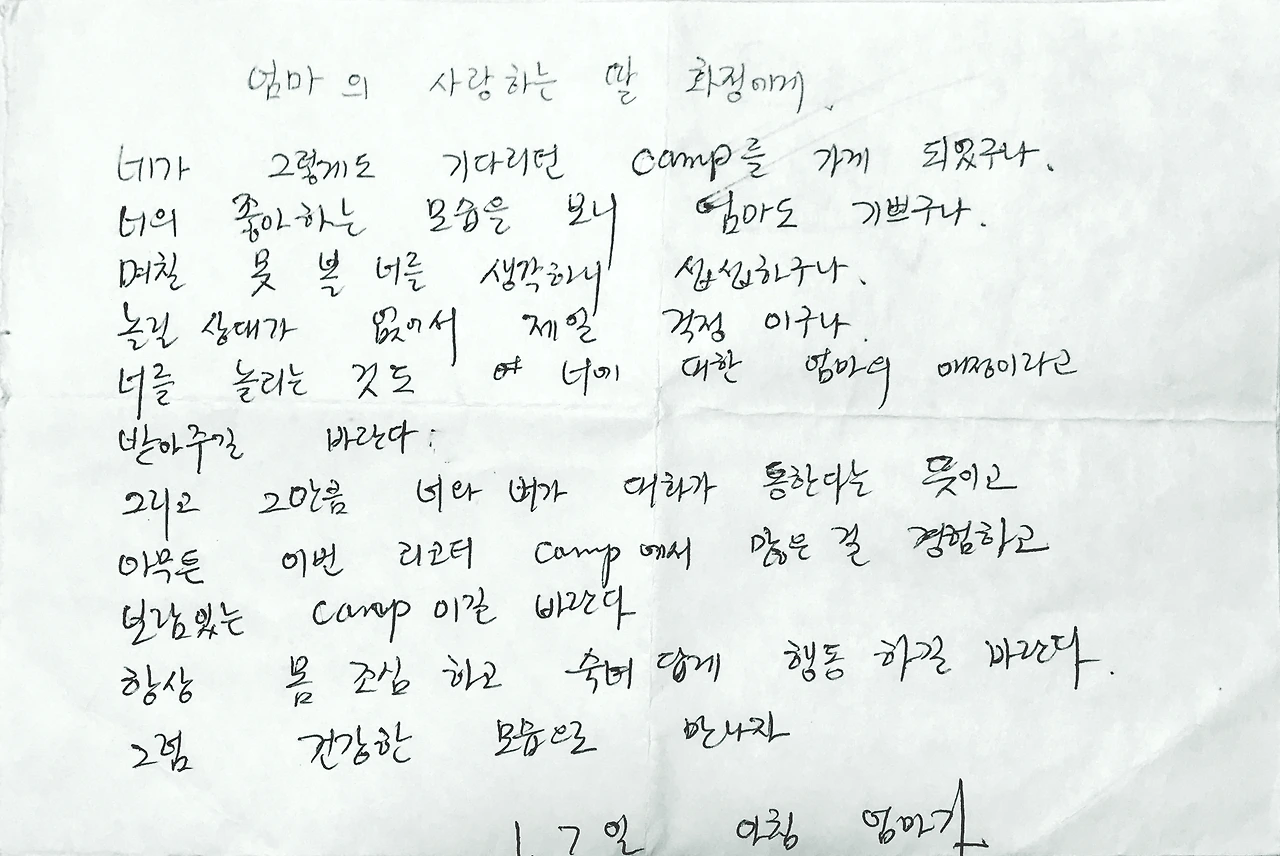 엄마의 사랑하는 딸 화정에게.
네가 그렇게도 기다리던 camp를 가게 되었구나.
너의 좋아하는 모습을 보니 엄마도 기쁘구나.
며칠 못 볼 너를 생각하니 섭섭하구나.
놀릴 상대가 없어서 제일 걱정 이구나
너를 놀리는 것도 너에 대한 엄마의 애정이라고
받아주길 바란다.
그리고 그만큼 너와 내가 대화가 통한다는 뜻이고
아무튼 이번 리코더 camp에서 많은 걸 경험하고
보람있는 camp이길 바란다
항상 몸 조심 하고 숙녀 답게 행동 하길 바란다.
그럼 건강한 모습으로 만나자
1. 7일 아침 엄마가.